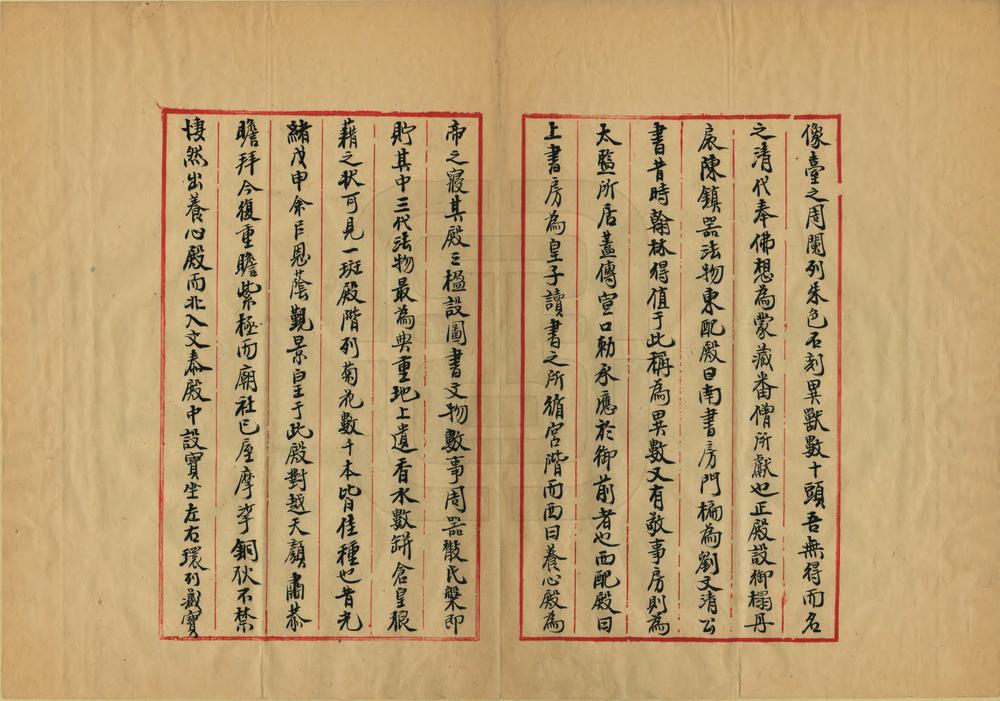 像臺之周闌列朱色石刻異獸數十頭吾無得而名
之清代奉佛想為蒙藏番僧所獻也正殿設御榻丹
扆陳鎮器法物東配殿曰南書房門楄為劉文清公
書昔時翰林得值于此稱為異數又有敬事房則為
太監所居蓋傳宣口勅承應於御前者也西配殿曰
上書房為皇子讀書之所循宮階而西曰養心殿為
帝之寢其殿三楹設圖書文物數事周器散氏槃即
貯其中三代法物最為典重地上遺香水數缾倉皇狼
藉之狀可見一斑殿階列菊花數千本皆佳種也昔光
緒戊申余以恩蔭覲景皇于此殿對越天顏肅恭
瞻拜今復重瞻紫極而廟社已屋摩挲銅狄不禁
悽然出養心殿而北入交泰殿中設寶坐左右環列藏寶